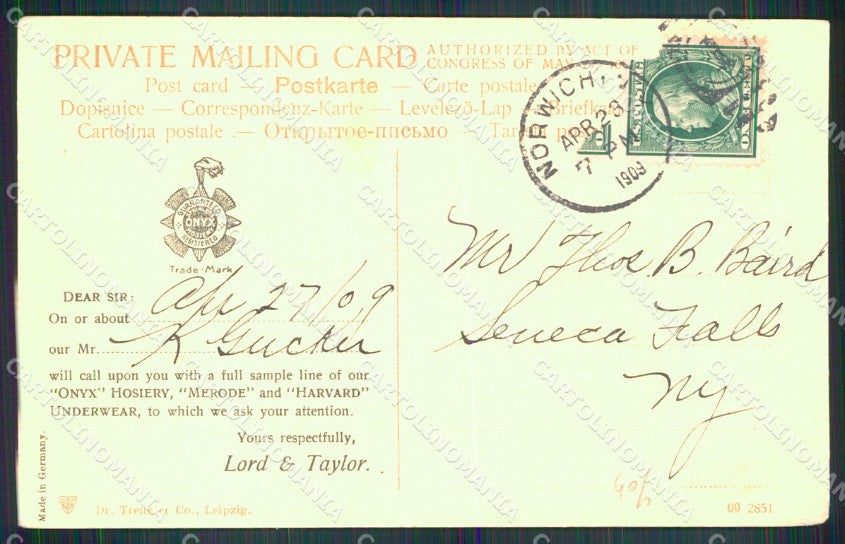 PRIVATE MAILING CARD AUTHORIZED BY ACT OF
CONGRESS OF MAY
Post card — Postkarte — Carte postale
Dopisnice — Correspondenz-Karte — Levelező-Lap — Briefka
Cartolina postale — Открытое-письмо — Tar
NORWICH, N.Y.
APR 28
7 PM
1909
GUARANTEED
ONYX
REGISTERED
Trade-Mark
DEAR SIR:
On or about Apr 27/09
our Mr. K Gucker
will call upon you with a full sample line of our
"ONYX" HOSIERY, "MERODE" and "HARVARD"
UNDERWEAR, to which we ask your attention.
Yours respectfully,
Lord & Taylor.
Mr Thos B. Baird
Seneca Falls
NY
Made in Germany.
Dr. Trenkler Co., Leipzig.
09 2851
CARTOLINOMANIA